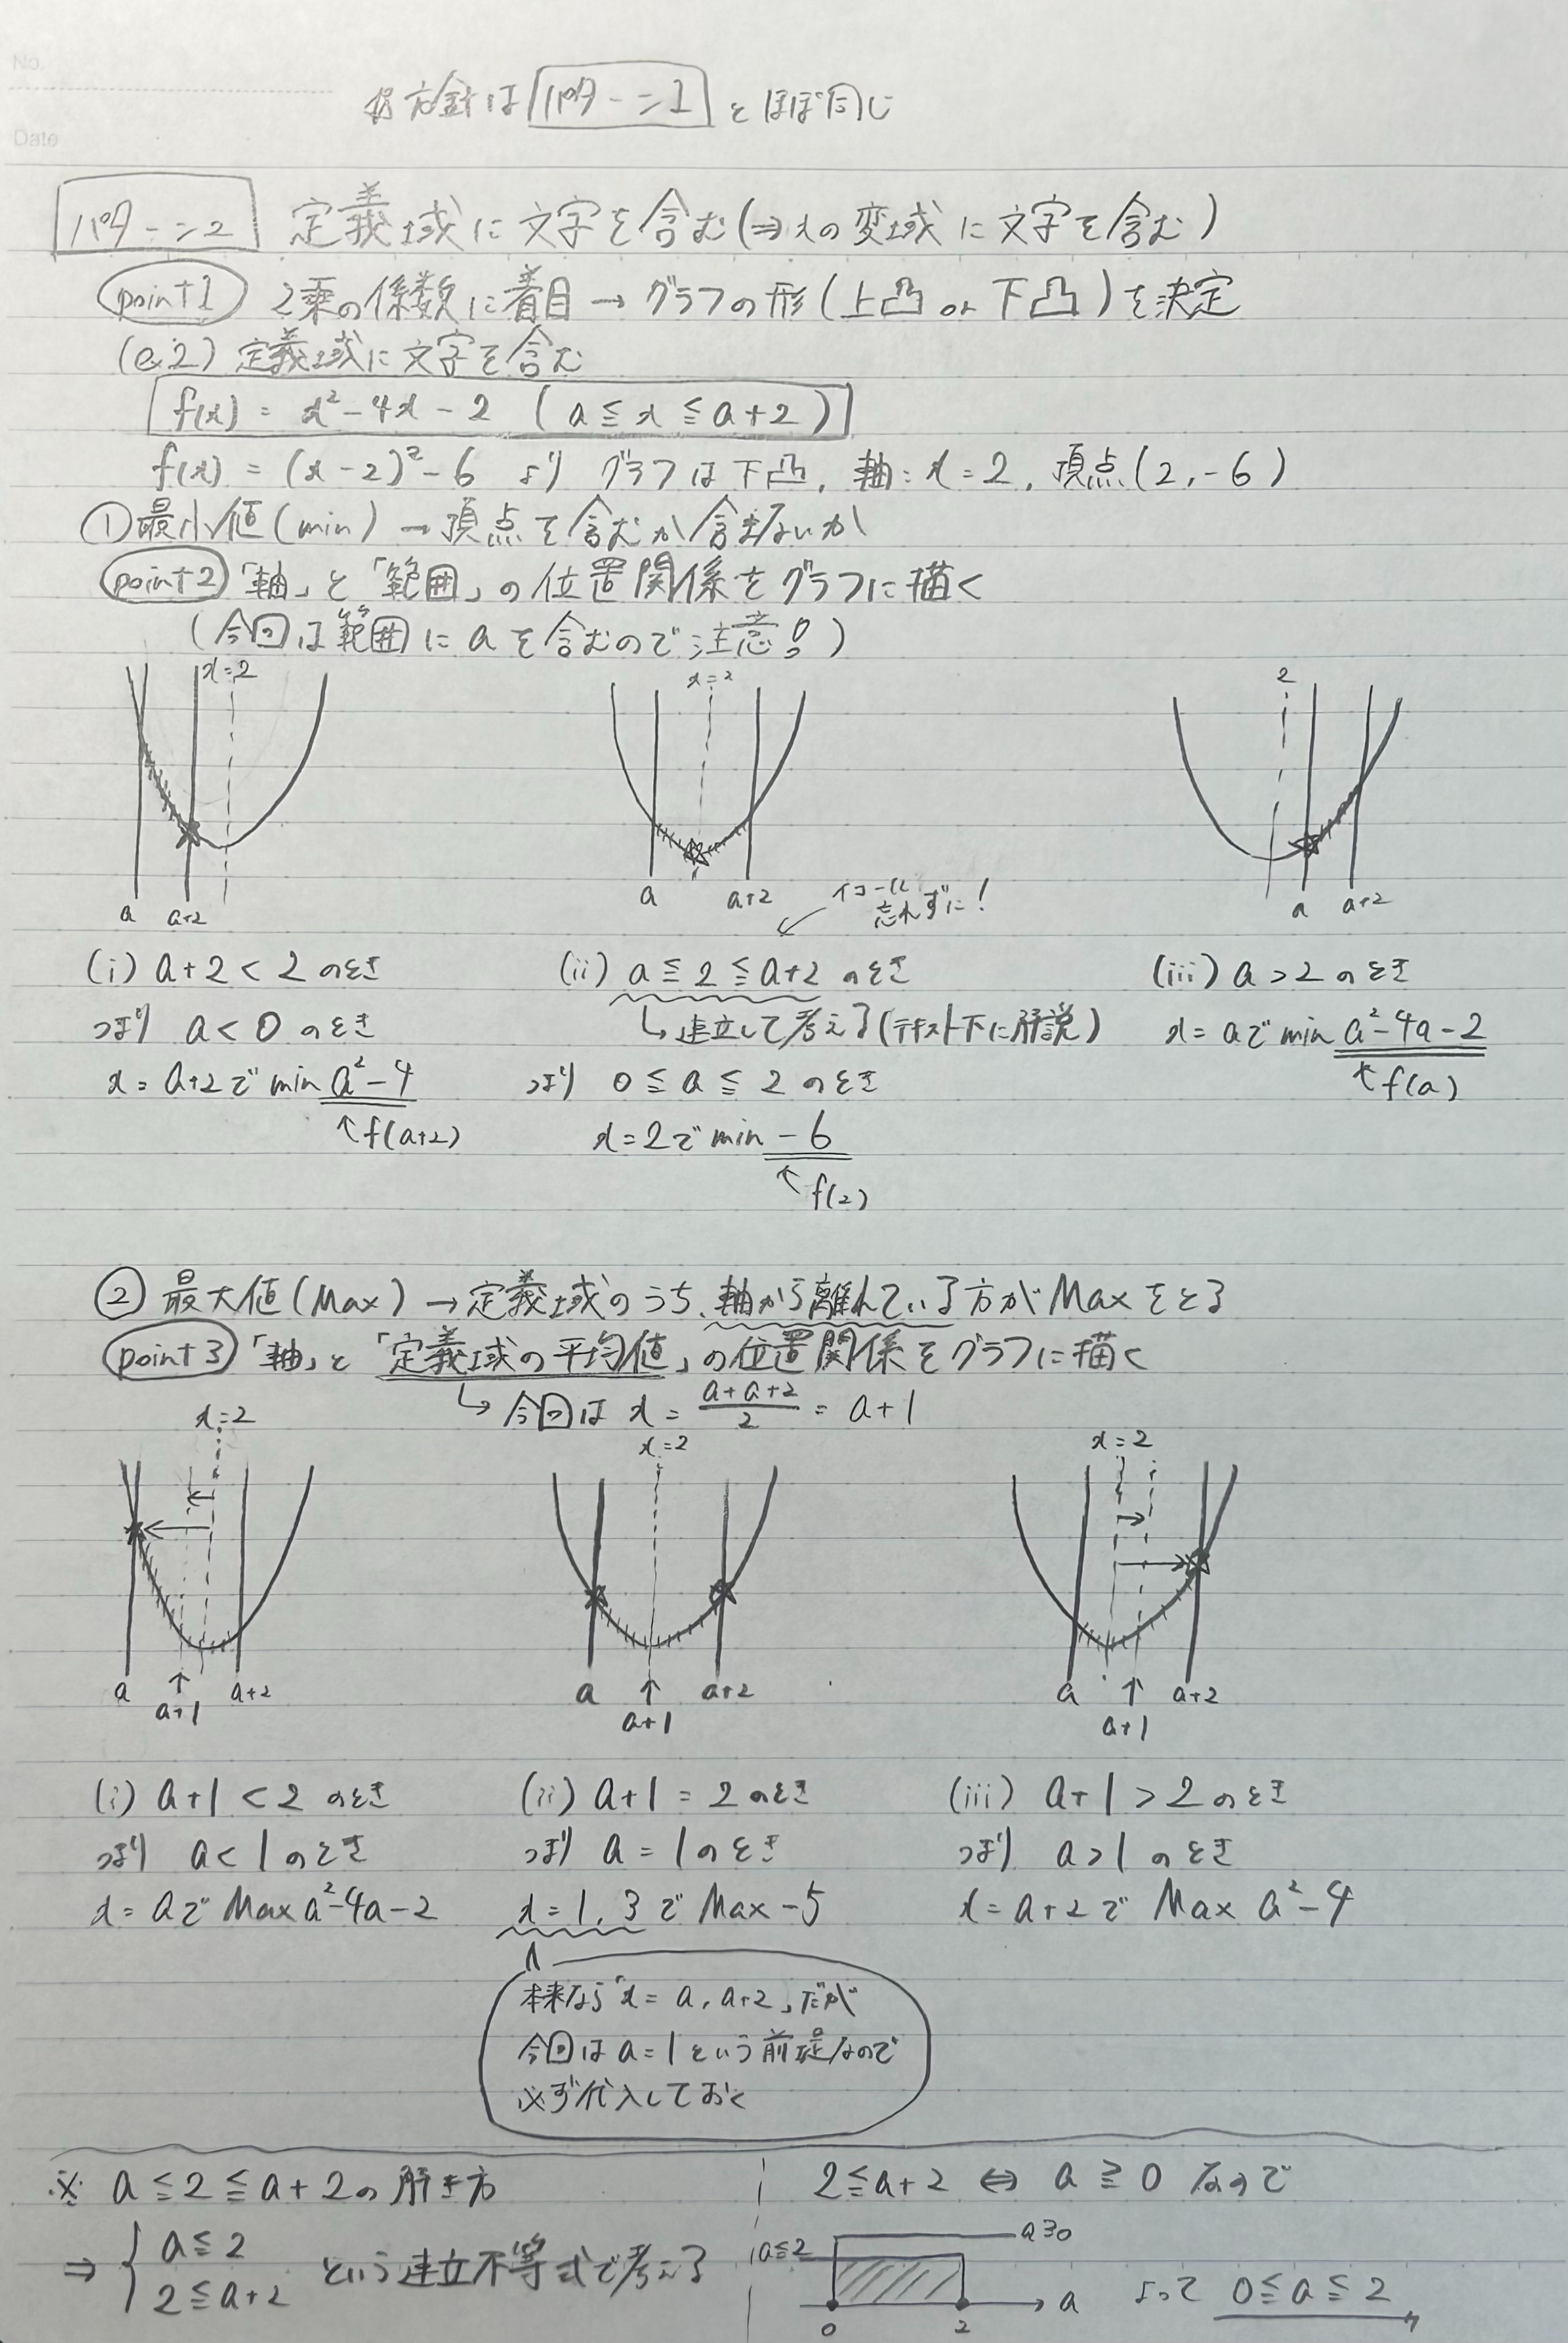 No.
Date
方針は パターン1 とほぼ同じ
パターン2 定義域に文字を含む(⇒xの変域に文字を含む)
point1 2乗の係数に着目→グラフの形(上凸 or 下凸)を決定
(e.2) 定義域に文字を含む
f(x) = x²-4x-2 (a≦x≦a+2)
f(x) = (x-2)²-6 より グラフは下凸, 軸:x=2, 頂点(2,-6)
①最小値(min)→頂点を含むか含まないか
point2 「軸」と「範囲」の位置関係をグラフに描く
(今回は範囲にaを含むので注意!)
x=2 x=2 2
a a+2 a a+2 a a+2
イコール忘れずに!
(i) a+2<2のとき (ii) a≦2≦a+2のとき (iii) a>2のとき
つまり a<0のとき ↳連立して考える(テキスト下に解説) x=aでmin a²-4a-2
x=a+2でmin a²-4 つまり 0≦a≦2のとき ↑f(a)
↑f(a+2) x=2でmin -6
↑f(2)
②最大値(Max)→定義域のうち、軸から離れている方がMaxをとる
point3 「軸」と「定義域の平均値」の位置関係をグラフに描く
↳今回は x = (a+a+2)/2 = a+1
x=2 x=2 x=2
a ↑ a+2 a ↑ a+2 a ↑ a+2
a+1 a+1 a+1
(i) a+1<2のとき (ii) a+1=2のとき (iii) a+1>2のとき
つまり a<1のとき つまり a=1のとき つまり a>1のとき
x=aでMax a²-4a-2 x=1, 3でMax -5 x=a+2でMax a²-4
本来なら「x=a, a+2」だが
今回はa=1という前提なので
必ず代入しておく
※ a≦2≦a+2の解き方
⇒ { a≦2
2≦a+2 という連立不等式で考える
2≦a+2 ⇔ a≧0 なので
a≦2 a≧0
0 2 a
よって 0≦a≦2